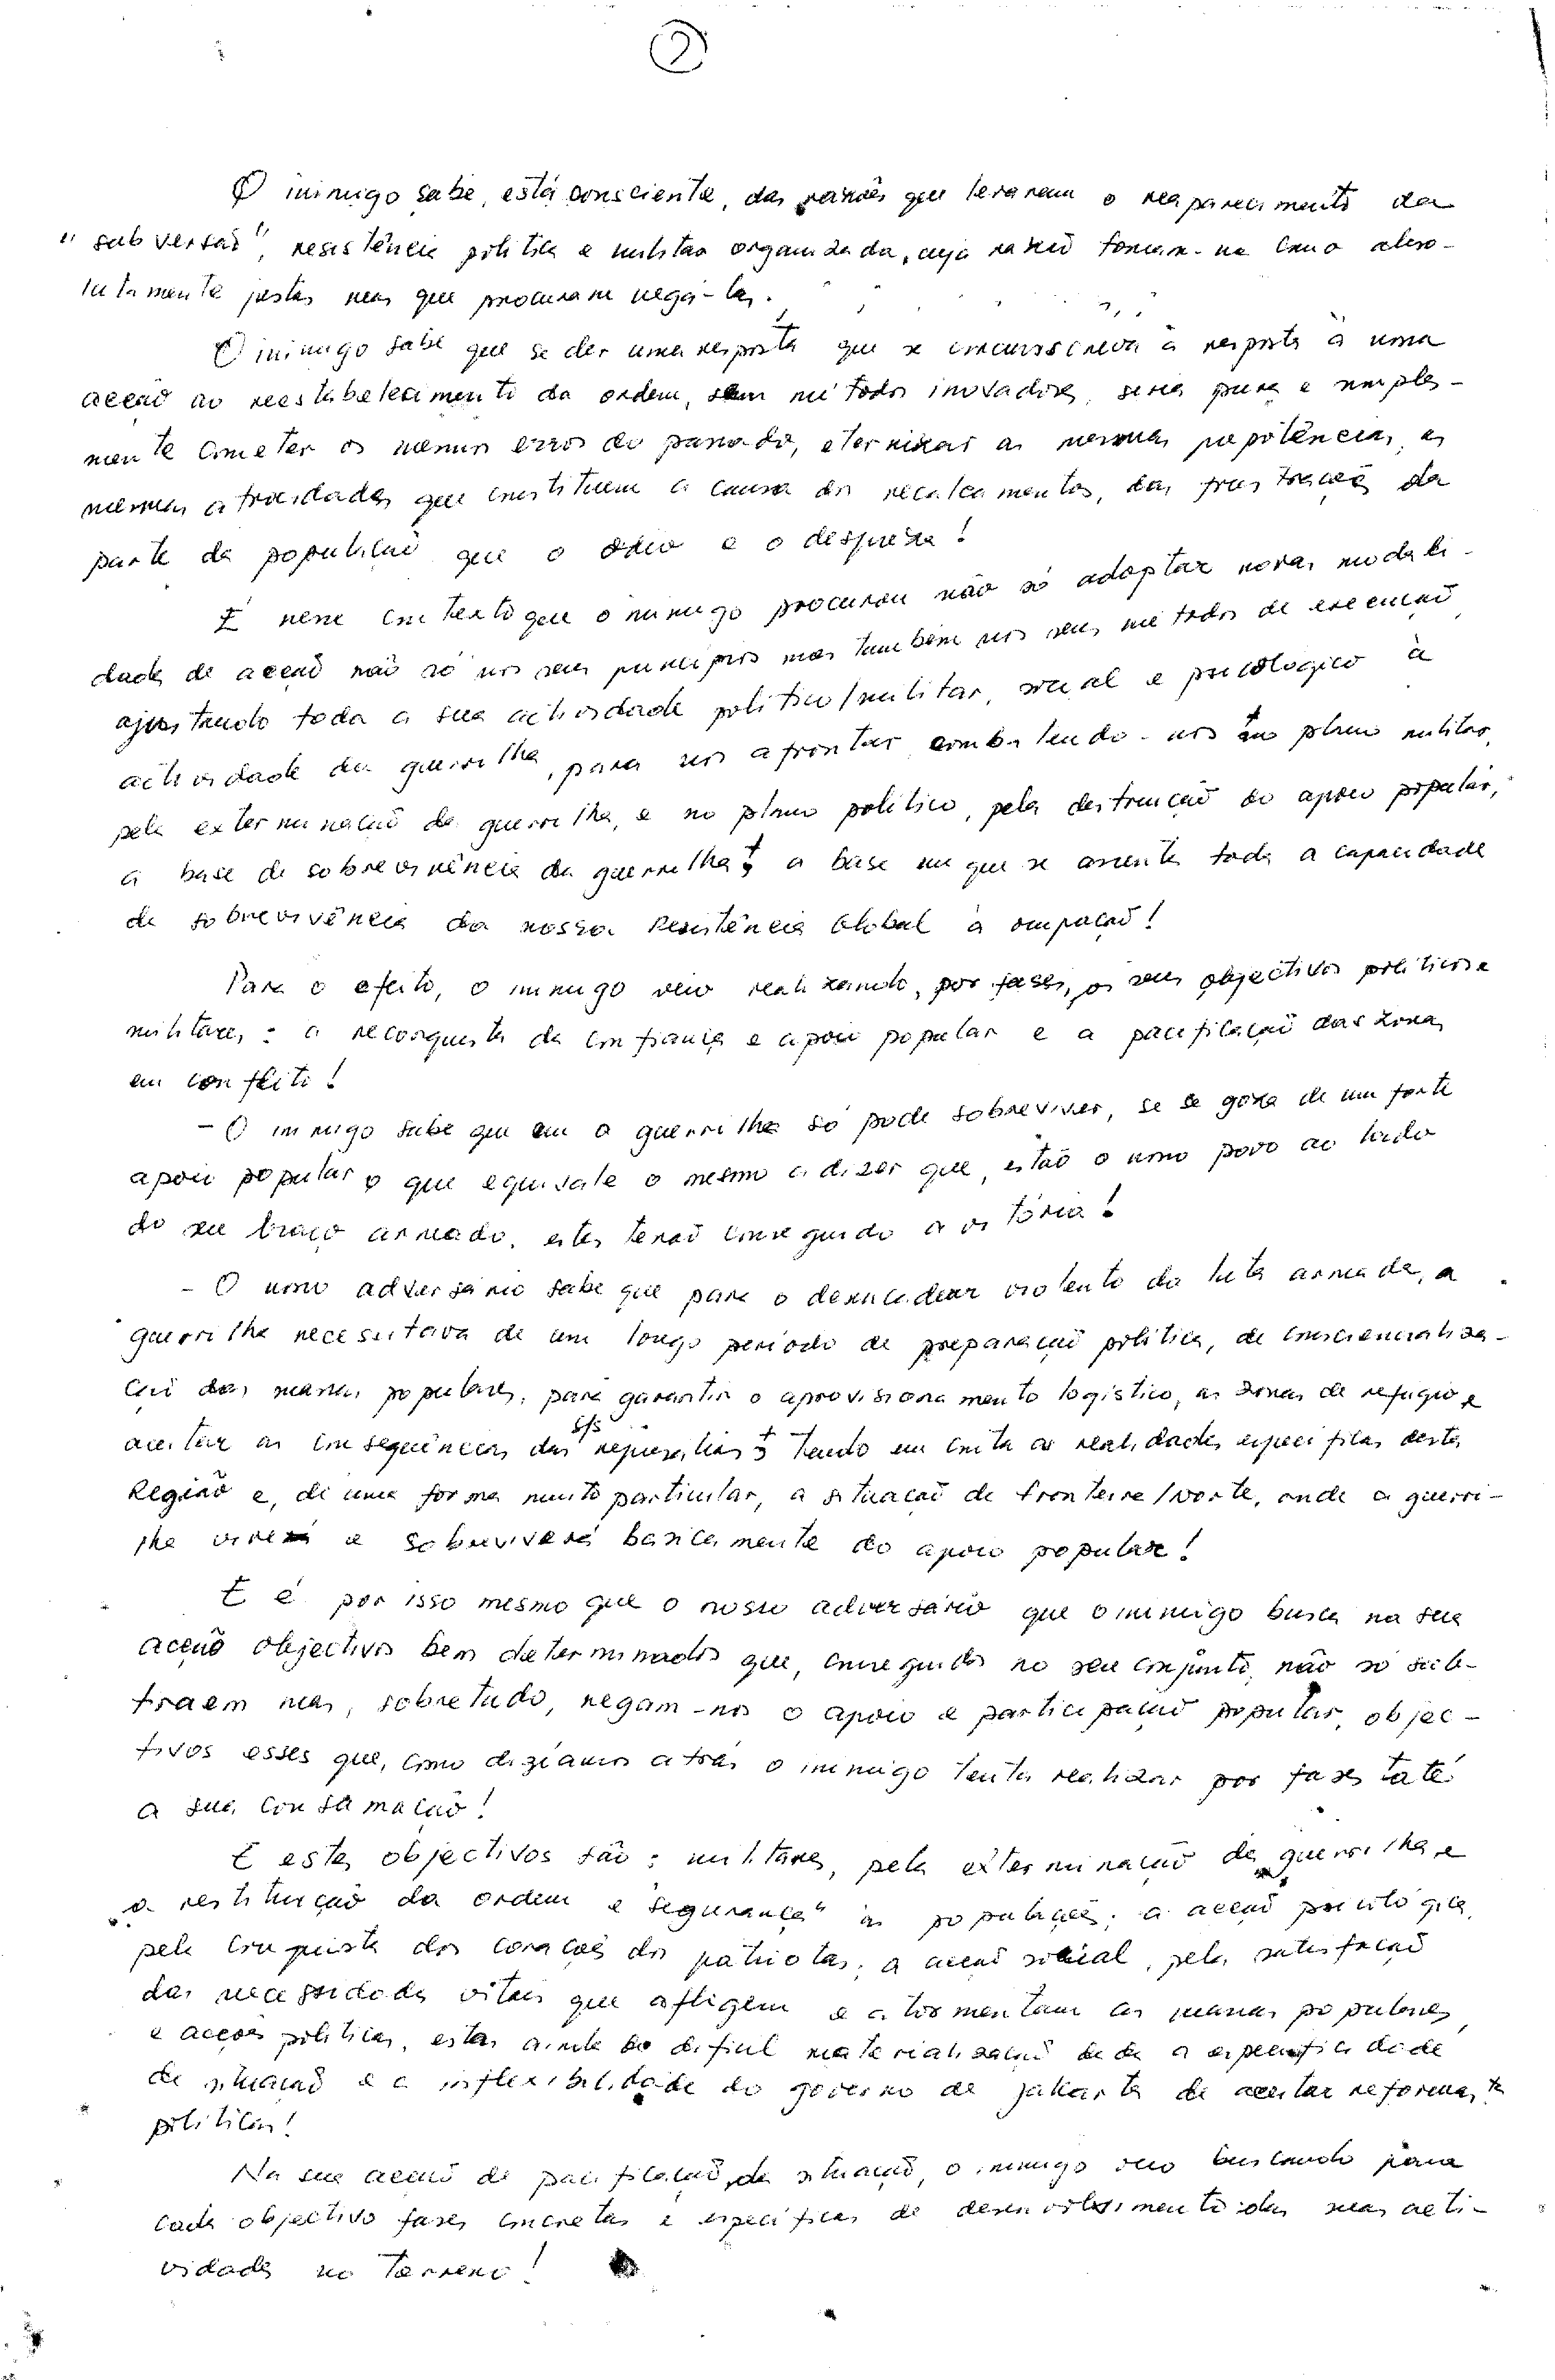 2
O inimigo sabe, está consciente, das razões que levaram o reaparecimento da
"subversão", resistência política e militar organizada, cuja razão tomam-na como abso-
lutamente justas mas que procuram negá-las.
O inimigo sabe que se der uma resposta que se circunscreva à resposta à uma
acção ao reestabelecimento da ordem, sem métodos inovadores, seria pura e simples-
mente cometer os mesmos erros do passado, eternizar as mesmas prepotências, as
mesmas atrocidades que constituem a causa dos recalcamentos, das frustrações da
parte da população que o ódio e o despreza!
É nesse contexto que o inimigo procurou não só adoptar novas modali-
dades de acção não só nos seus princípios mas também nos seus métodos de execução,
ajustando toda a sua actividade político/militar, social e psicológico à
actividade da guerrilha, para nos afrontar combatendo-nos no plano militar,
pela exterminação da guerrilha, e no plano político, pela destruição do apoio popular,
a base de sobrevivência da guerrilha a base em que se assenta toda a capacidade
de sobrevivência da nossa Resistência Global à ocupação!
Para o efeito, o inimigo veio realizando, por fases, os seus objectivos políticos e
militares: a reconquista da confiança e apoio popular e a pacificação das zonas
em conflito!
- O inimigo sabe que em a guerrilha só pode sobreviver, se se goza de um forte
apoio popular o que equivale o mesmo a dizer que, estão o nosso povo ao lado
do seu braço armado, estes terão conseguido a vitória!
- O nosso adversário sabe que para o desencadear violento da luta armada, a
guerrilha necessitava de um longo período de preparação política, de consciencializa-
ção das massas populares, para garantir o aprovisionamento logístico, as zonas de refúgio e
aceitar as consequências das s/s represálias tendo em conta as realidades específicas desta
Região e, de uma forma muito particular, a situação de fronteira/norte, onde a guerri-
lha viverá e sobreviverá basicamente do apoio popular!
E é por isso mesmo que o nosso adversário que o inimigo busca na sua
acção objectivos bem determinados que, conseguidos no seu conjunto, não só sub-
traem mas, sobretudo, negam-nos o apoio e participação popular, objec-
tivos esses que, como dizíamos atrás o inimigo tenta realizar por fases até
a sua consumação!
E estes objectivos são: militares, pela exterminação da guerrilha, e
a restituição da ordem e "segurança" às populações; a acção psicológica,
pela conquista dos corações dos patriotas; a acção social, pela satisfação
das necessidades vitais que afligem e atormentam as massas populares,
e acções políticas, estas ainda de difícil materialização dada a especificidade
da situação e a inflexibilidade do governo de Jakarta de aceitar reformas
políticas!
Na sua acção de pacificação da situação, o inimigo veio buscando para
cada objectivo fases concretas e específicas de desenvolvimento das suas acti-
vidades no terreno!